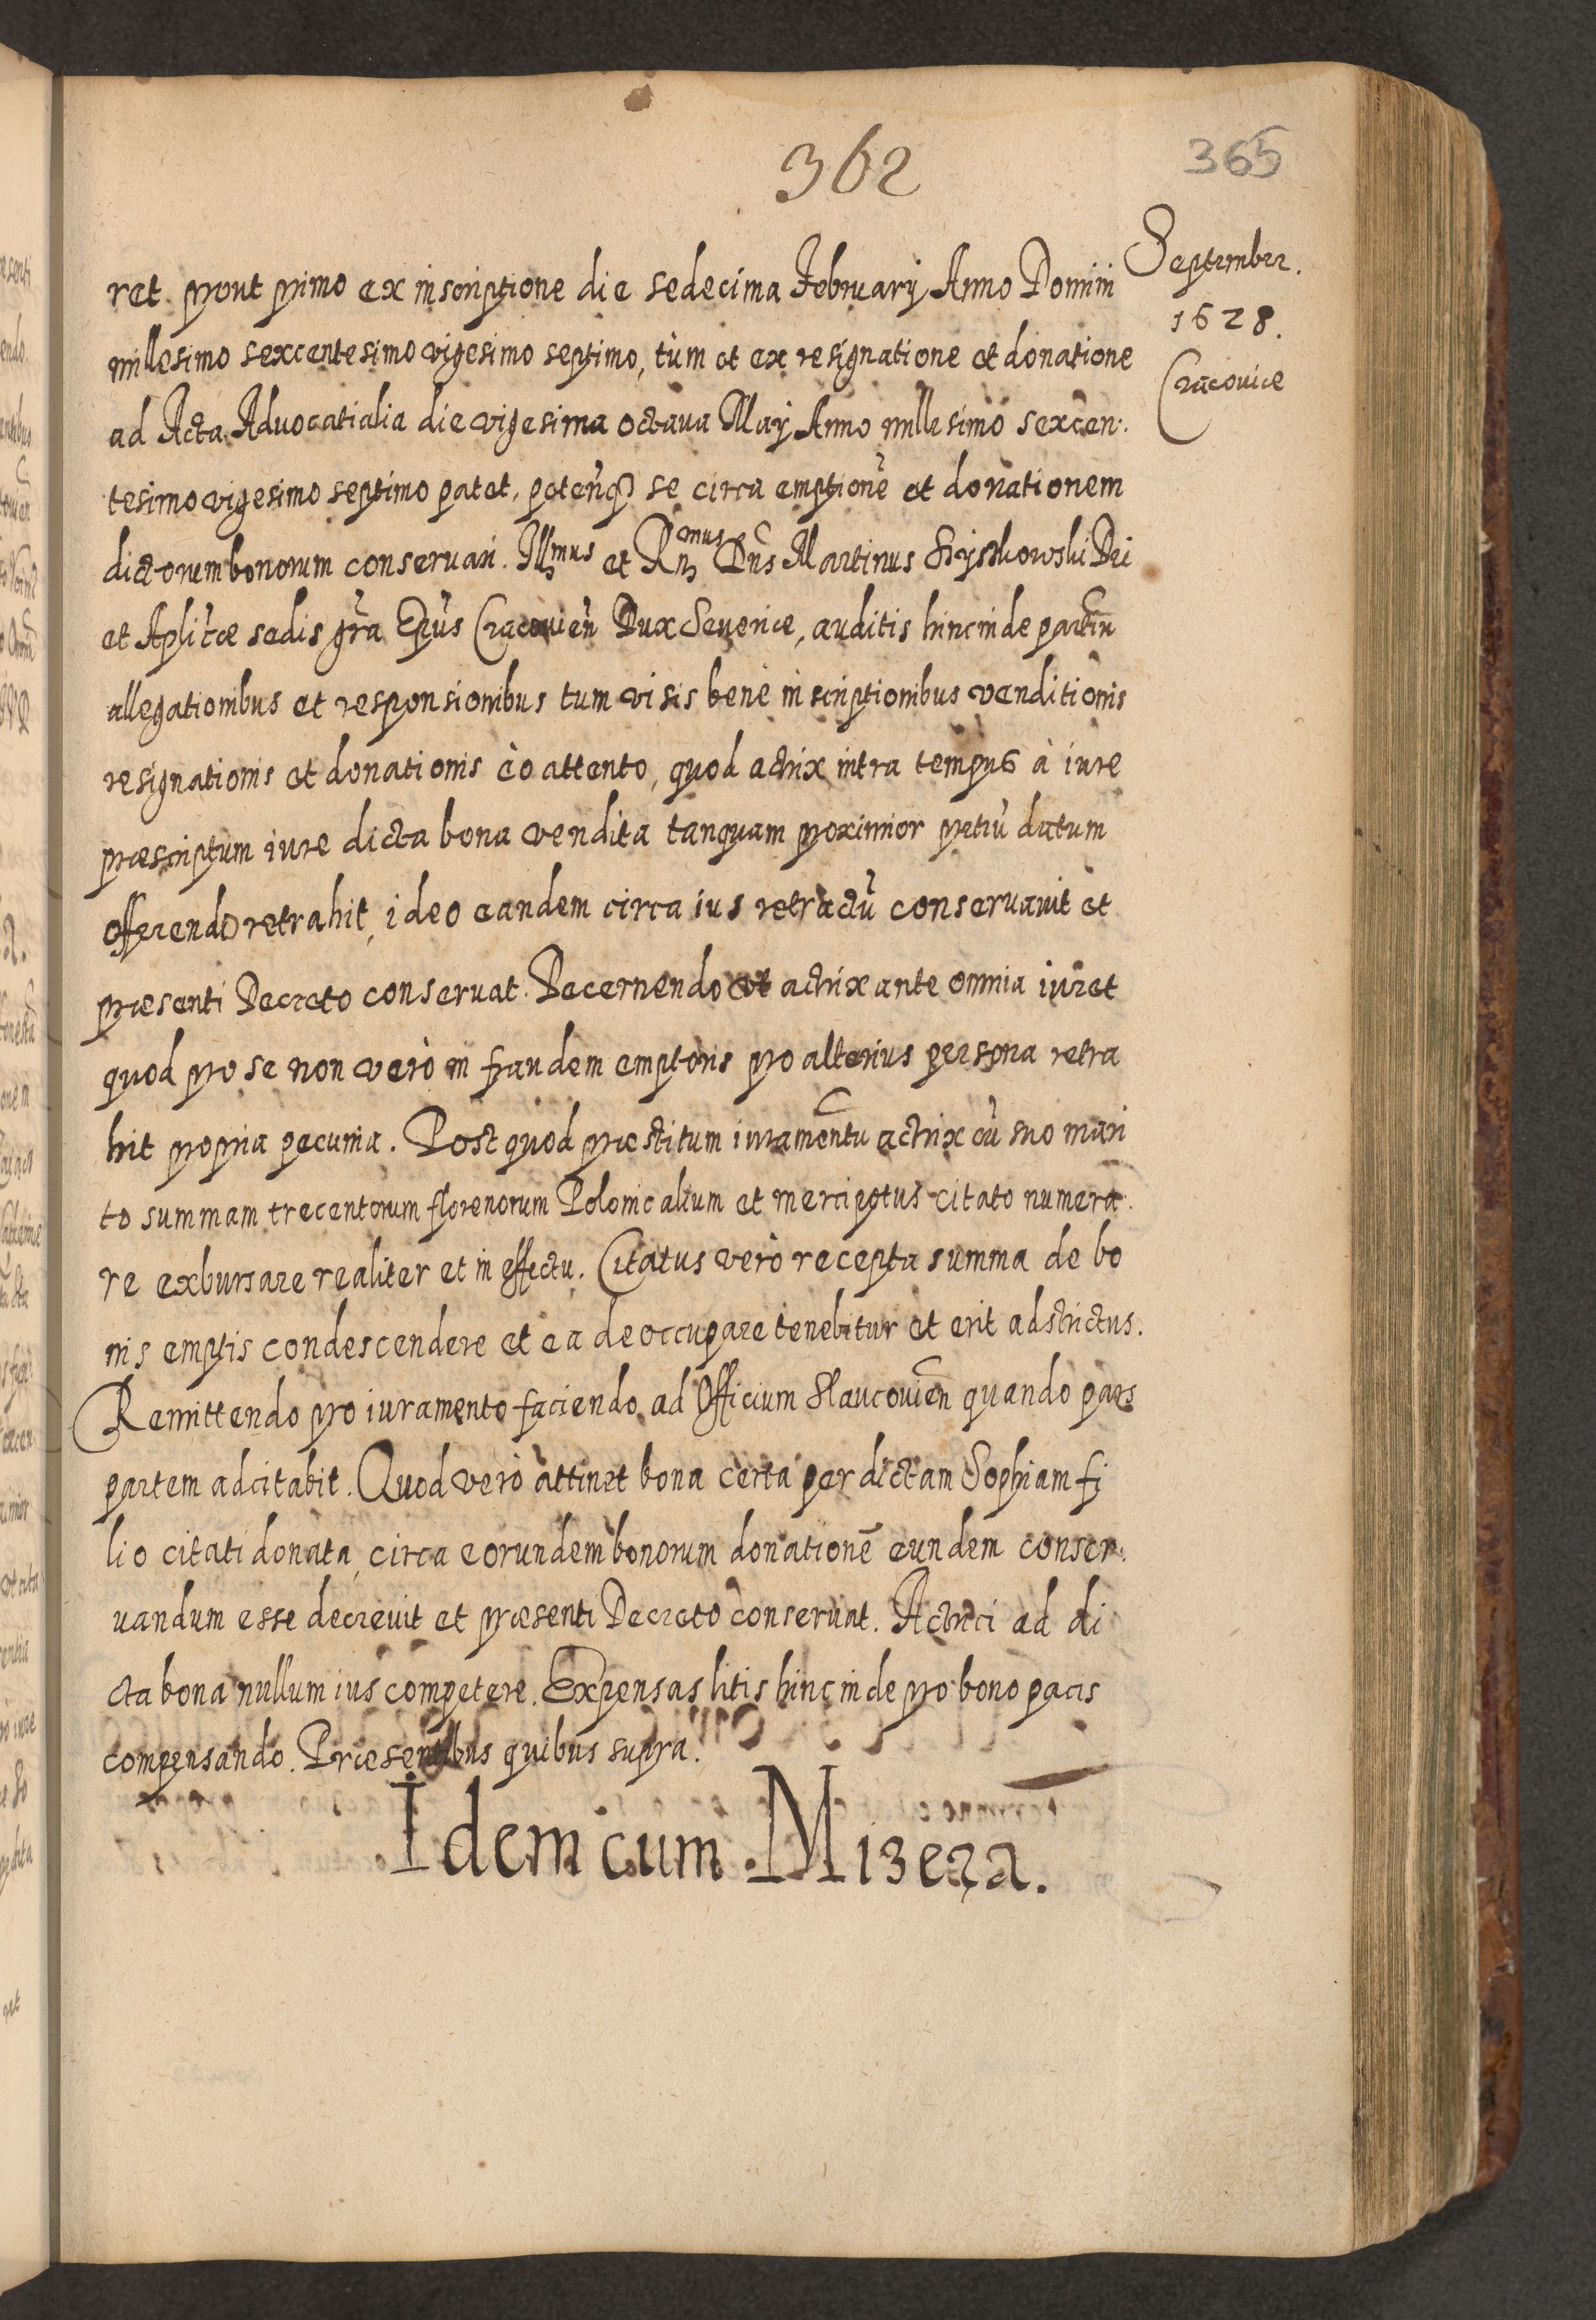 362
365
Septembrr.
1628.
Cracoviæ
ret. prout primo ex inscriptione die sedecima February Anno Domini
millesimo sexcentesimo vigesimo septimo, tùm et ex resignatione et donatione
ad Acta Advocatialia die vigesima octava May Anno millesimo sexcen.
tesimo vigesimo septimo patet, peteñq se circa emptionē et donationem
dictorum bonorum conservari. Illmus et Rmus Dns Martinus Szyszkowski Dei
et Aplicæ sedis gra Epus Cracovień Dux Severiæ, auditis hinc inde partiu
allegationibus et responsionibus tum visis bene inscriptionibus venditionis
resignationis et donationis èo attento, quod actrix intra tempus à iure
præscriptum iure dicta bona vendita tanquam proximior pretiū datum
offerendo retrahit, ideo eandem circa ius retractū conservavit et
præsenti Decreto conservat. Decernendo ut actrix ante omnia iuret
quod pro se non verò in fraudem emptoris pro alterius persona retra
hit propria pecunia. Post quod præstitum iuramentu actrix cū suo mari
to summam trecentorum florenorum Polonicalium et mercipotus citato numera.
re exbursare realiter et in effectu. Citatus verò recepta summa de bo
nis emptis condescendere et ea deoccupare tenebitur et erit adstrictus.
Remittendo pro iuramento faciendo ad Officium Slaucovien quando pars
partem adcitabit. Quod verò attinet bona certa per dictam Sophiam fi
lio citati donata, circa eorundem bonorum donationē eundem conser.
vandum esse decrevit et præsenti Decreto conservat. Actrici ad di
cta bona nullum ius competere. Expensas litis hinc inde pro bono pacis
compensando. Præsentibus quibus supra.
Idem cum Mizera.